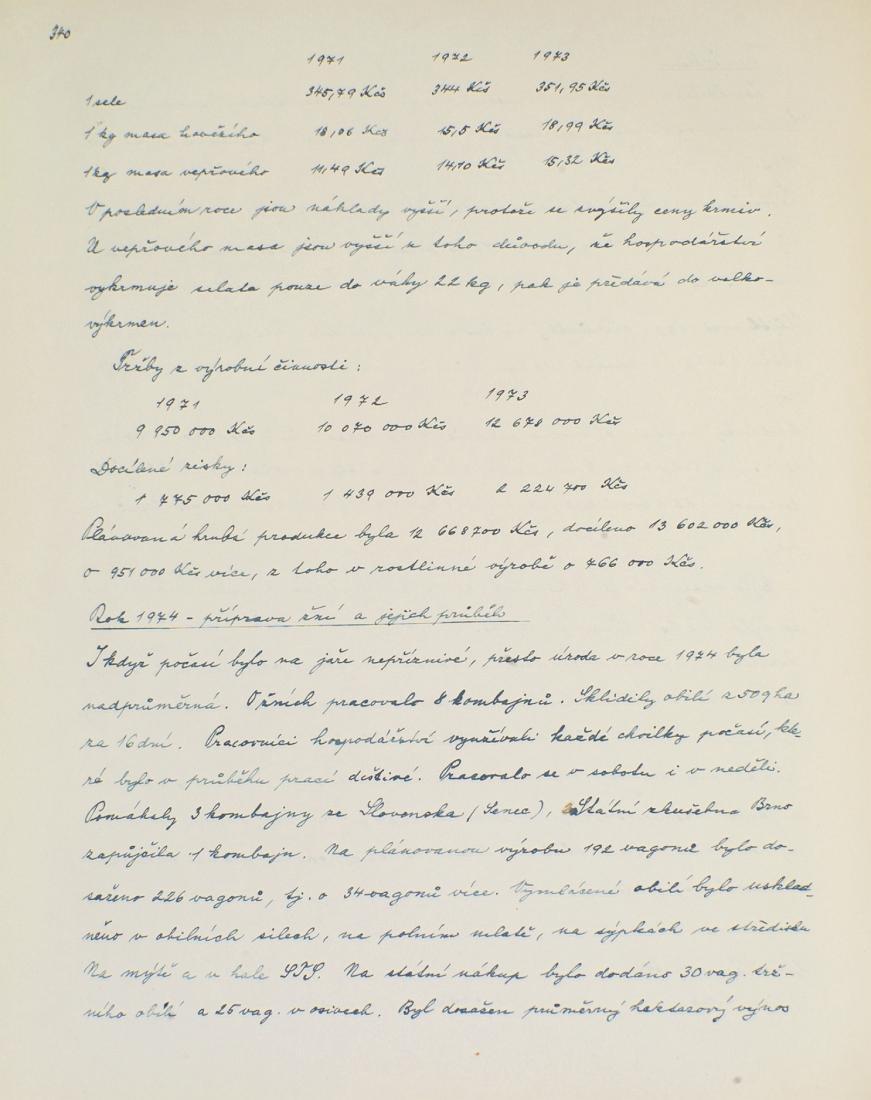 340
1971 1972 1973
1 sele 345,79 Kčs 344 Kčs 351,95 Kčs
1 kg masa hovězího 18,06 Kčs 15,5 Kčs 18,99 Kčs
1 kg masa vepřového 11,49 Kčs 14,10 Kčs 15,32 Kčs
V posledním roce jsou náklady vyšší, protože se zvýšily ceny krmiv.
U vepřového masa jsou vyšší z toho důvodu, že hospodářství
vykrmuje selata pouze do váhy 22 kg, pak je předává do velko-
výkrmen.
Tržby z výrobní činnosti:
1971 1972 1973
9 950 000 Kčs 10 070 000 Kčs 12 678 000 Kčs
Docílené zisky:
1 775 000 Kčs 1 439 000 Kčs 2 224 700 Kčs
Plánovaná hrubá produkce byla 12 668700 Kčs, docíleno 13 602 000 Kčs,
o 951 000 Kčs více, z toho v rostlinné výrobě o 766 000 Kčs.
Rok 1974 - příprava žní a jejich průběh
I když počasí bylo na jaře nepříznivé, přesto úroda v roce 1974 byla
nadprůměrná. O žních pracovalo 8 kombajnů. Sklidily obilí z 509 ha
za 16 dní. Pracovníci hospodářství využívali každé chvilky počasí, kte-
ré bylo v průběhu prací deštivé. Pracovalo se v sobotu i v neděli.
Pomáhaly 3 kombajny ze Slovenska (Senec), Státní zkušebna Brno
zapůjčila 1 kombajn. Na plánovanou výrobu 192 vagonů bylo do-
saženo 226 vagonů, tj. o 34 vagonů více. Vymlácené obilí bylo usklad-
něno v obilních silech, na polním mlatě, na sýpkách ve středisku
Na mýtě a v hale STS. Na státní nákup bylo dodáno 30 vag. trž-
ního obilí a 25 vag. v osivech. Byl dosažen průměrný hektarový výnos